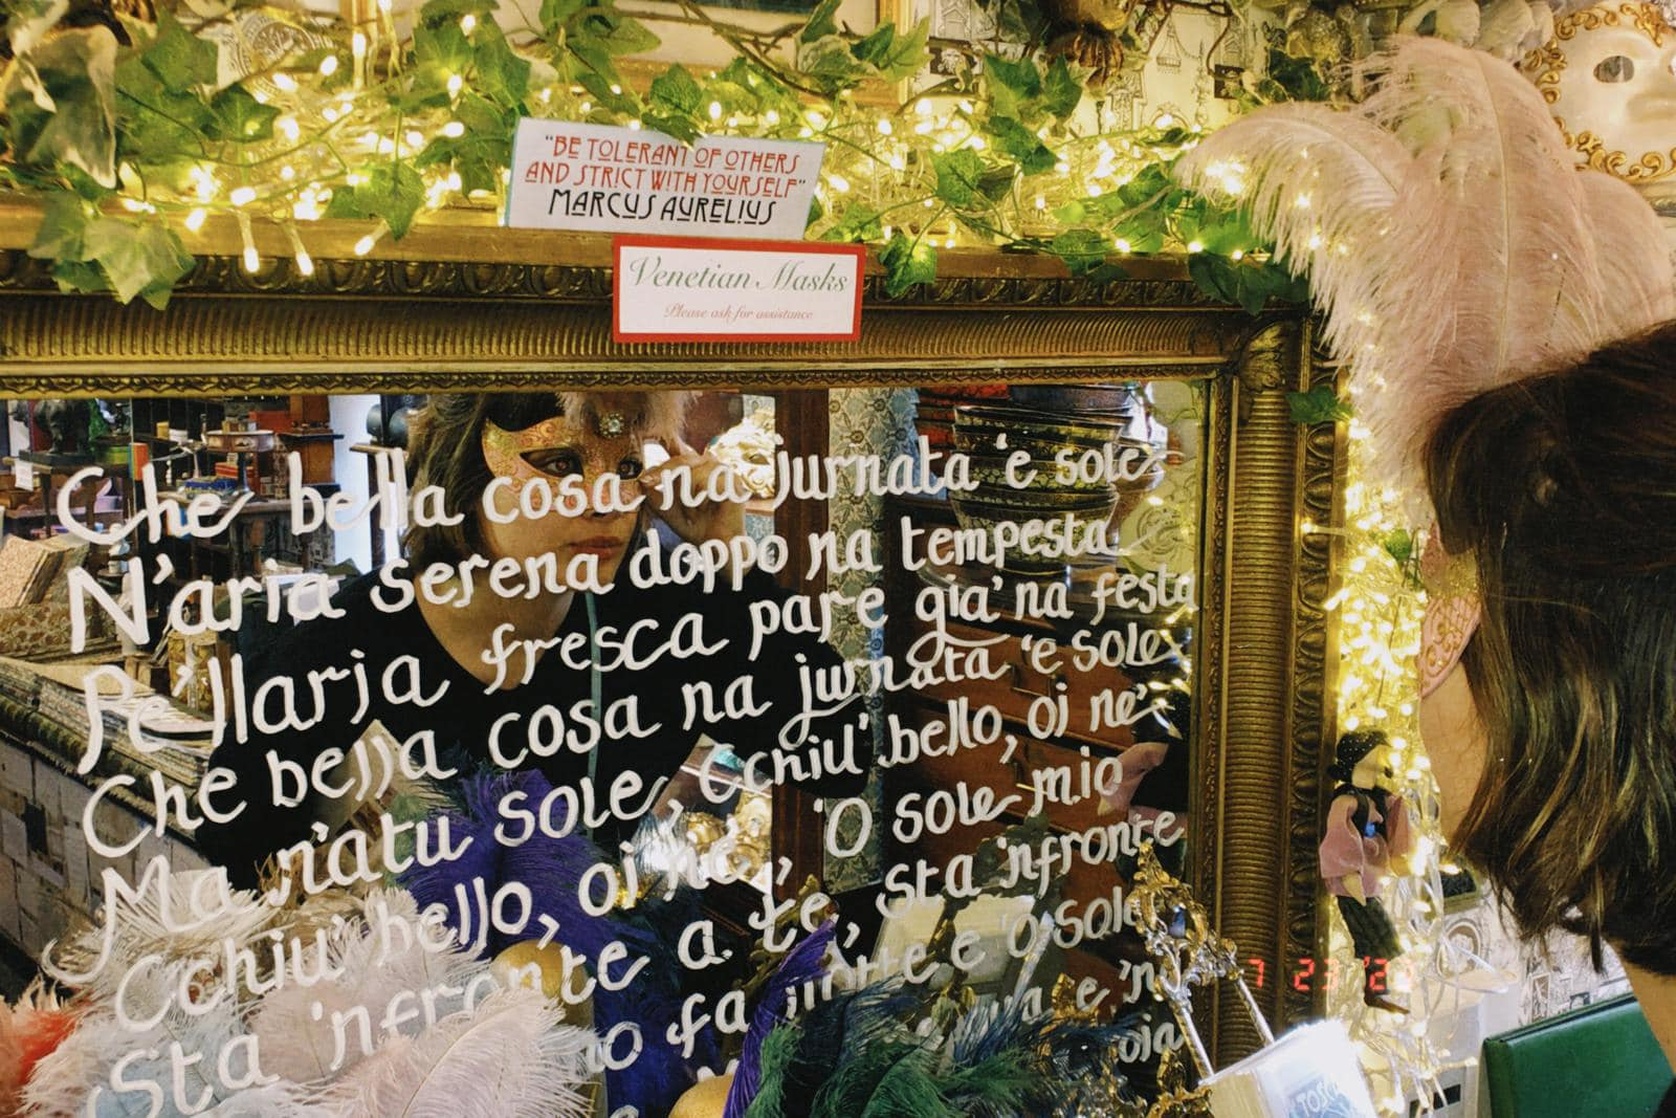 "BE TOLERANT OF OTHERS
AND STRICT WITH YOURSELF"
MARCUS AURELIUS
Venetian Masks
Please ask for assistance
Che bella cosa na jurnata 'e sole
N'aria serena doppo na tempesta
Pe'llaria fresca pare gia' na festa
Che bella cosa na jurnata 'e sole
Ma n'atu sole, Cchiu' bello, oi ne'
Cchiu' bello, oi ne', 'O sole mio
Sta 'nfronte a te, Sta 'nfronte
fa notte e 'O sole
e 'n
7 23 '2